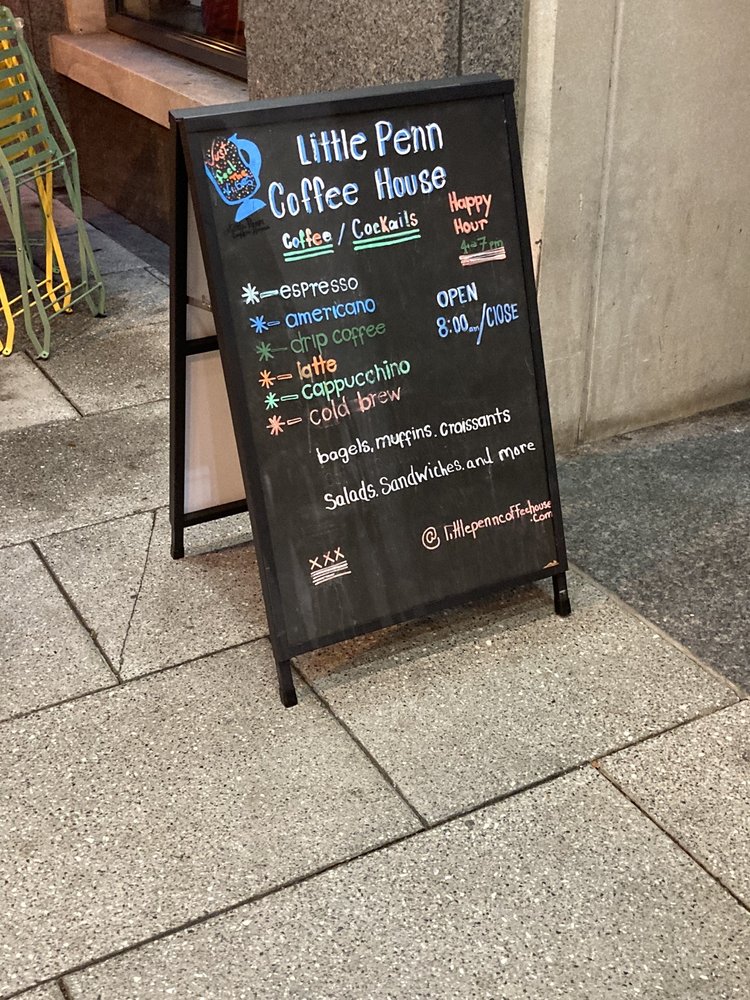 Little Penn
Coffee House
Just
feel
the
Coffee / Cocktails
Happy
Hour
4-7 pm
*-espresso
*-americano
*-drip coffee
*-latte
*-cappucchino
*-cold brew
OPEN
8:00am/ClOSE
bagels, muffins. Croissants
Salads. Sandwiches. and more
@littlepenncoffeehouse
.com
xxx